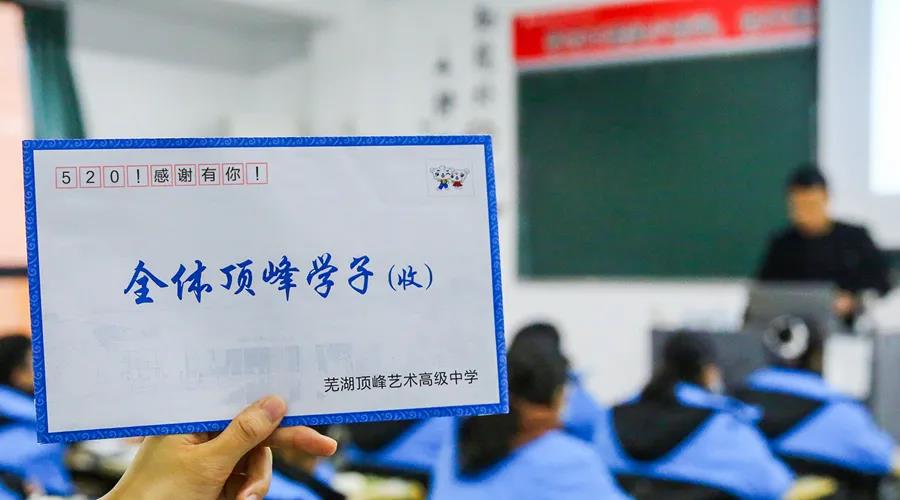 520!感谢有你!
全体顶峰学子(收)
芜湖顶峰艺术高级中学